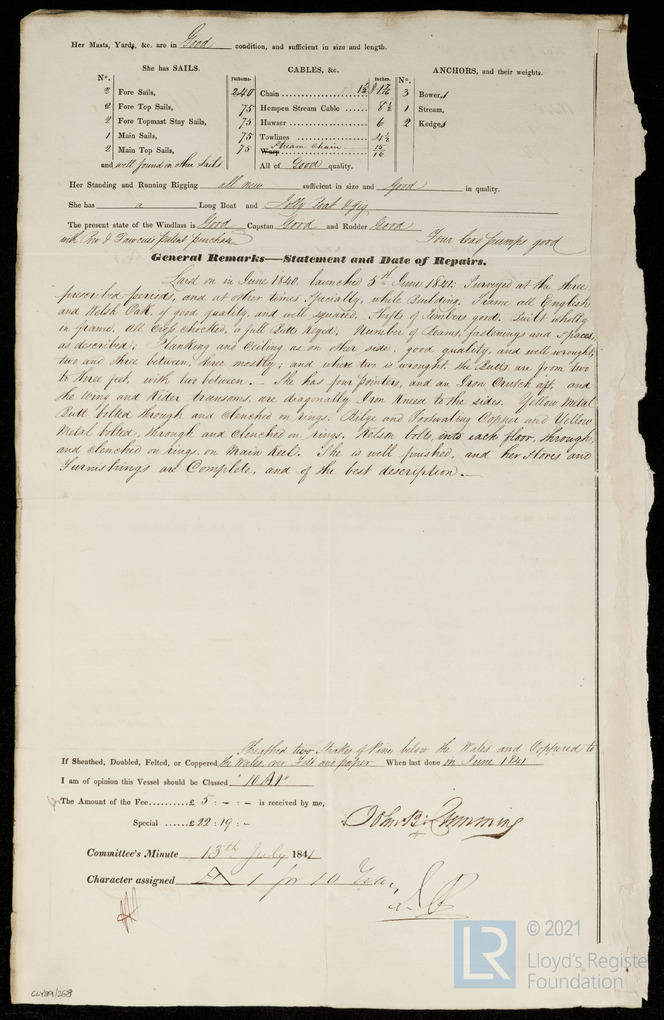 Her Masts, Yards, &c. are in Good condition, and sufficient in size and length.
She has SAILS.
CABLES, &c.
ANCHORS, and their weights.
N°.
Fathoms.
Inches.
N°.
2 Fore Sails,
240 Chain 1 7/16
3 Bowers
2 Fore Top Sails,
75 Hempen Stream Cable 8 1/2
1 Stream,
2 Fore Topmast Stay Sails,
75 Hawser 6
2 Kedges
1 Main Sails,
75 Towlines 4 1/2
2 Main Top Sails,
75 Warp Stream Chain 15/16
and well found in other sails
All of Good quality.
Her Standing and Running Rigging all new sufficient in size and Good in quality.
She has a Long Boat and Jolly Boat & Gig
The present state of the Windlass is Good Capstan Good and Rudder Good
with Patent purchase Four lead pumps good
General Remarks—Statement and Date of Repairs.
Laid on in June 1840, launched 5th June 1841; Surveyed at the three
prescribed periods, and at other times Specially, while Building. Frame all English
and Welsh Oak, of good quality, and well squared. Shifts of Timbers good. Built wholly
in frame, all Crop Chocked, a full Butts Keyed; Number of Beams, fastenings and spaces,
as described; Planking and Ceiling as on other side, good quality, and well wrought,
two and three between, three mostly; and where two is wrought, the Butts are from two
to three feet, with two between. – She has four pointers, and an Iron Crutch aft, and
the Wing and Rider transoms, are diagonally Iron Kneed to the sides. Yellow Metal
Butt bolted through and Clenched on rings. Bilge and Footwaling Copper and Yellow
Metal bolted, through and Clenched on rings. Kelson bolts, into each floor, through,
and clenched on rings, on Main Keel. She is well finished, and her Stores and
Furnishings are Complete, and of the best description. –
Sheathed two Strakes of Pine below the Wales and Coppered to
If Sheathed, Doubled, Felted, or Coppered the Wales, over Felt and paper When last done in June 1841
I am of opinion this Vessel should be Classed "10 A1"
The Amount of the Fee..........£ 5 : - : - is received by me,
Special ......£ 22 : 19 : -
John B: Cumming
Committee's Minute 13th July 1841
Character assigned A 1 for 10 Years
© 2021
LR
Lloyd's Register
Foundation